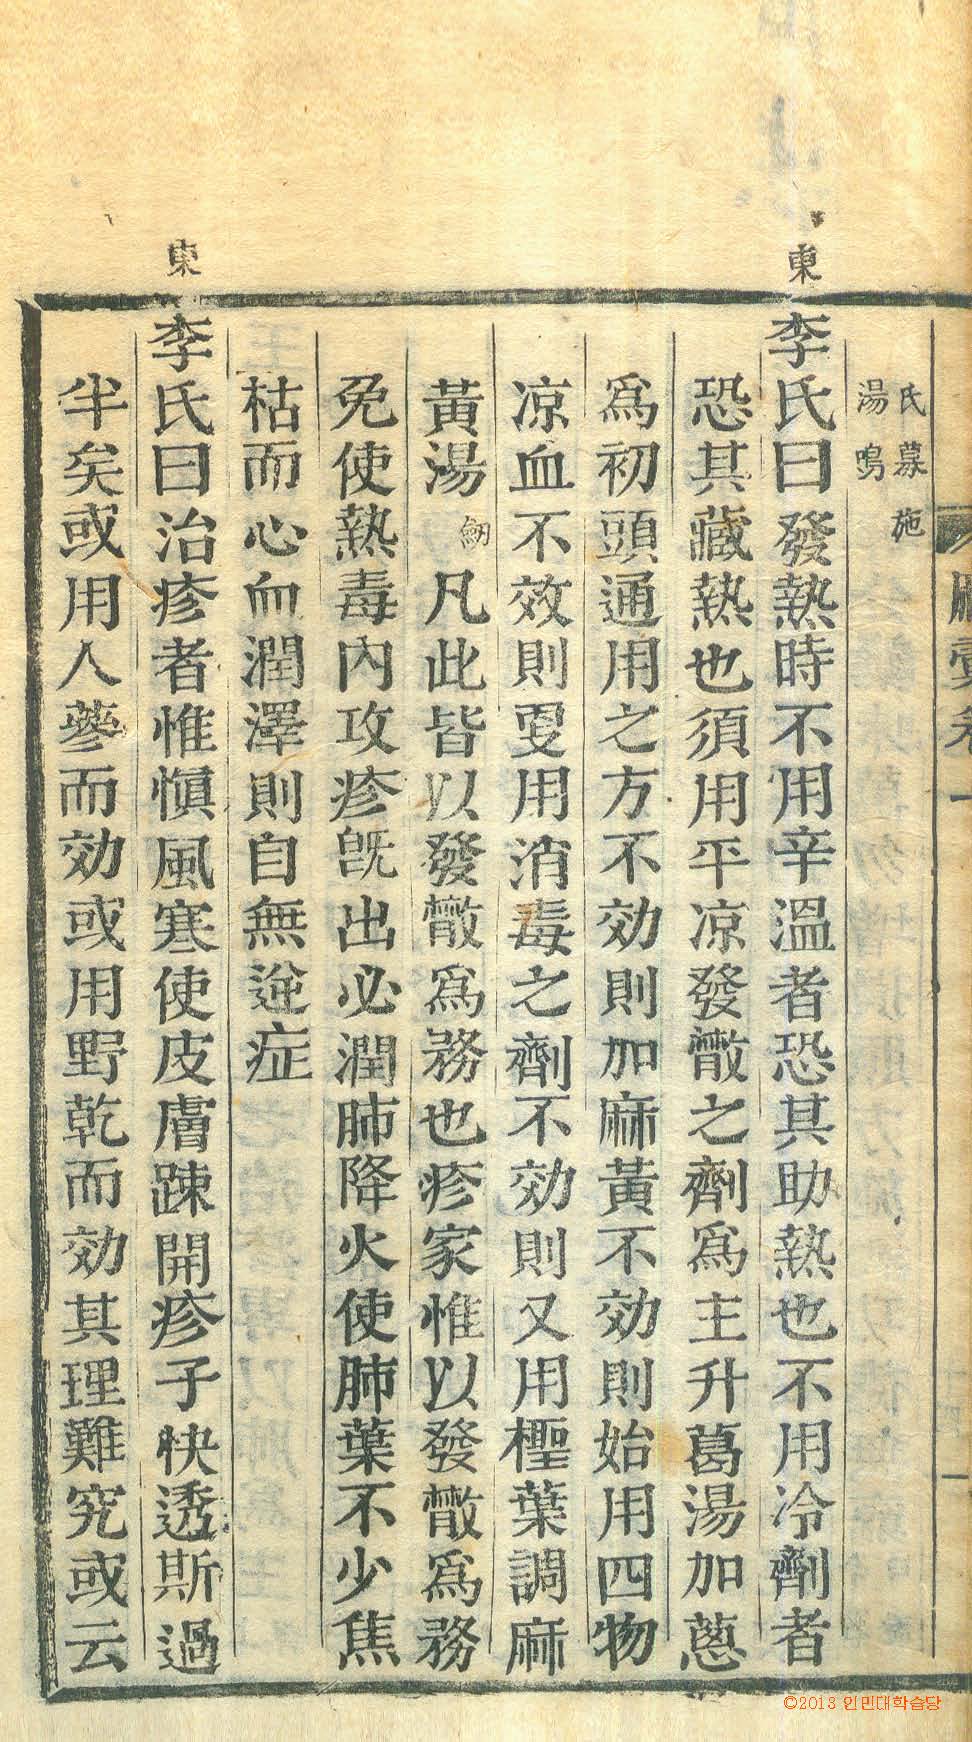 氏蔘施
湯鳴
東
李氏曰發熱時不用辛溫者恐其助熱也不用冷劑者
恐其藏熱也須用平凉發散之劑爲主升葛湯加蔥
爲初頭通用之方不効則加麻黃不効則始用四物
凉血不效則更用消毒之劑不効則又用檉葉調麻
黃湯 凡此皆以發散爲務也疹家惟以發散爲務
免使熱毒內攻疹旣出必潤肺降火使肺葉不少焦
枯而心血潤澤則自無逆症
東
李氏曰治疹者惟愼風寒使皮膚踈開疹子快透斯過
半矣或用人蔘而効或用野乾而効其理難究或云
©2013 인민대학습당